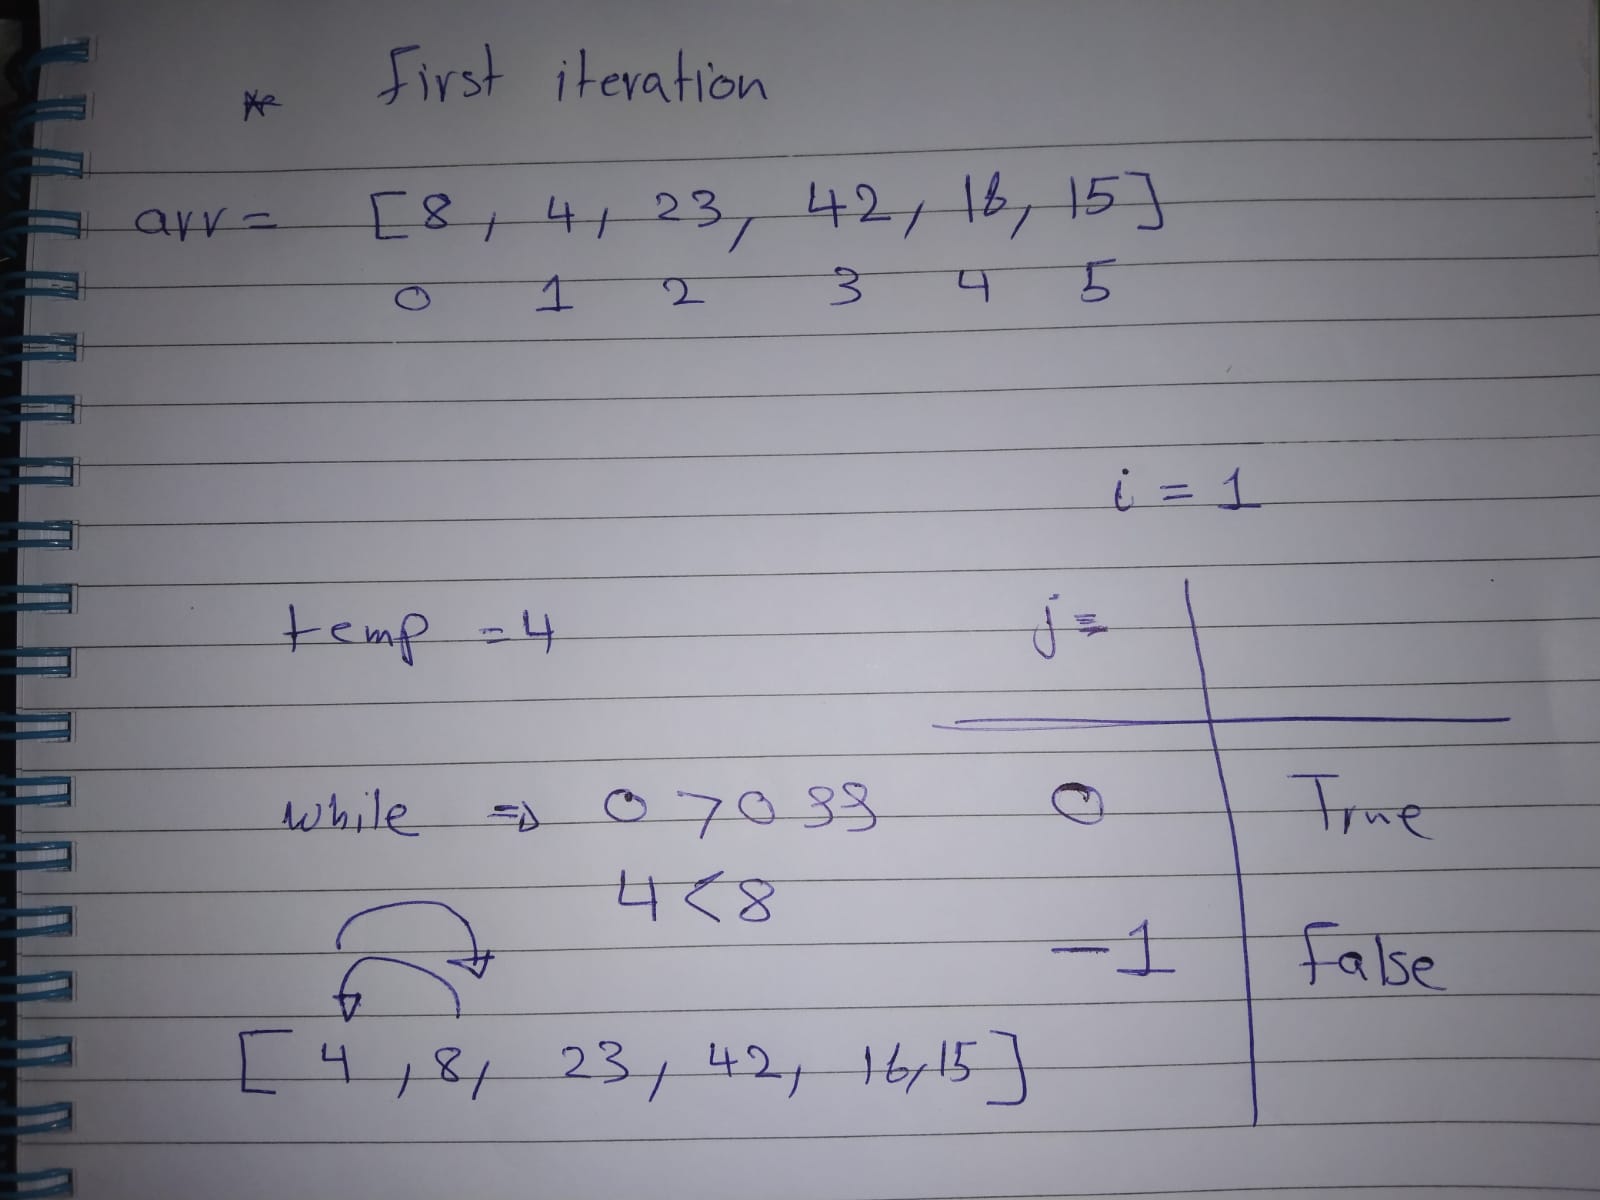 * first iteration
arr = [8, 4, 23, 42, 16, 15]
0 1 2 3 4 5
i = 1
temp = 4 j =
while => 0 > 0 && 0 True
4 < 8
-1 false
[4, 8, 23, 42, 16, 15]